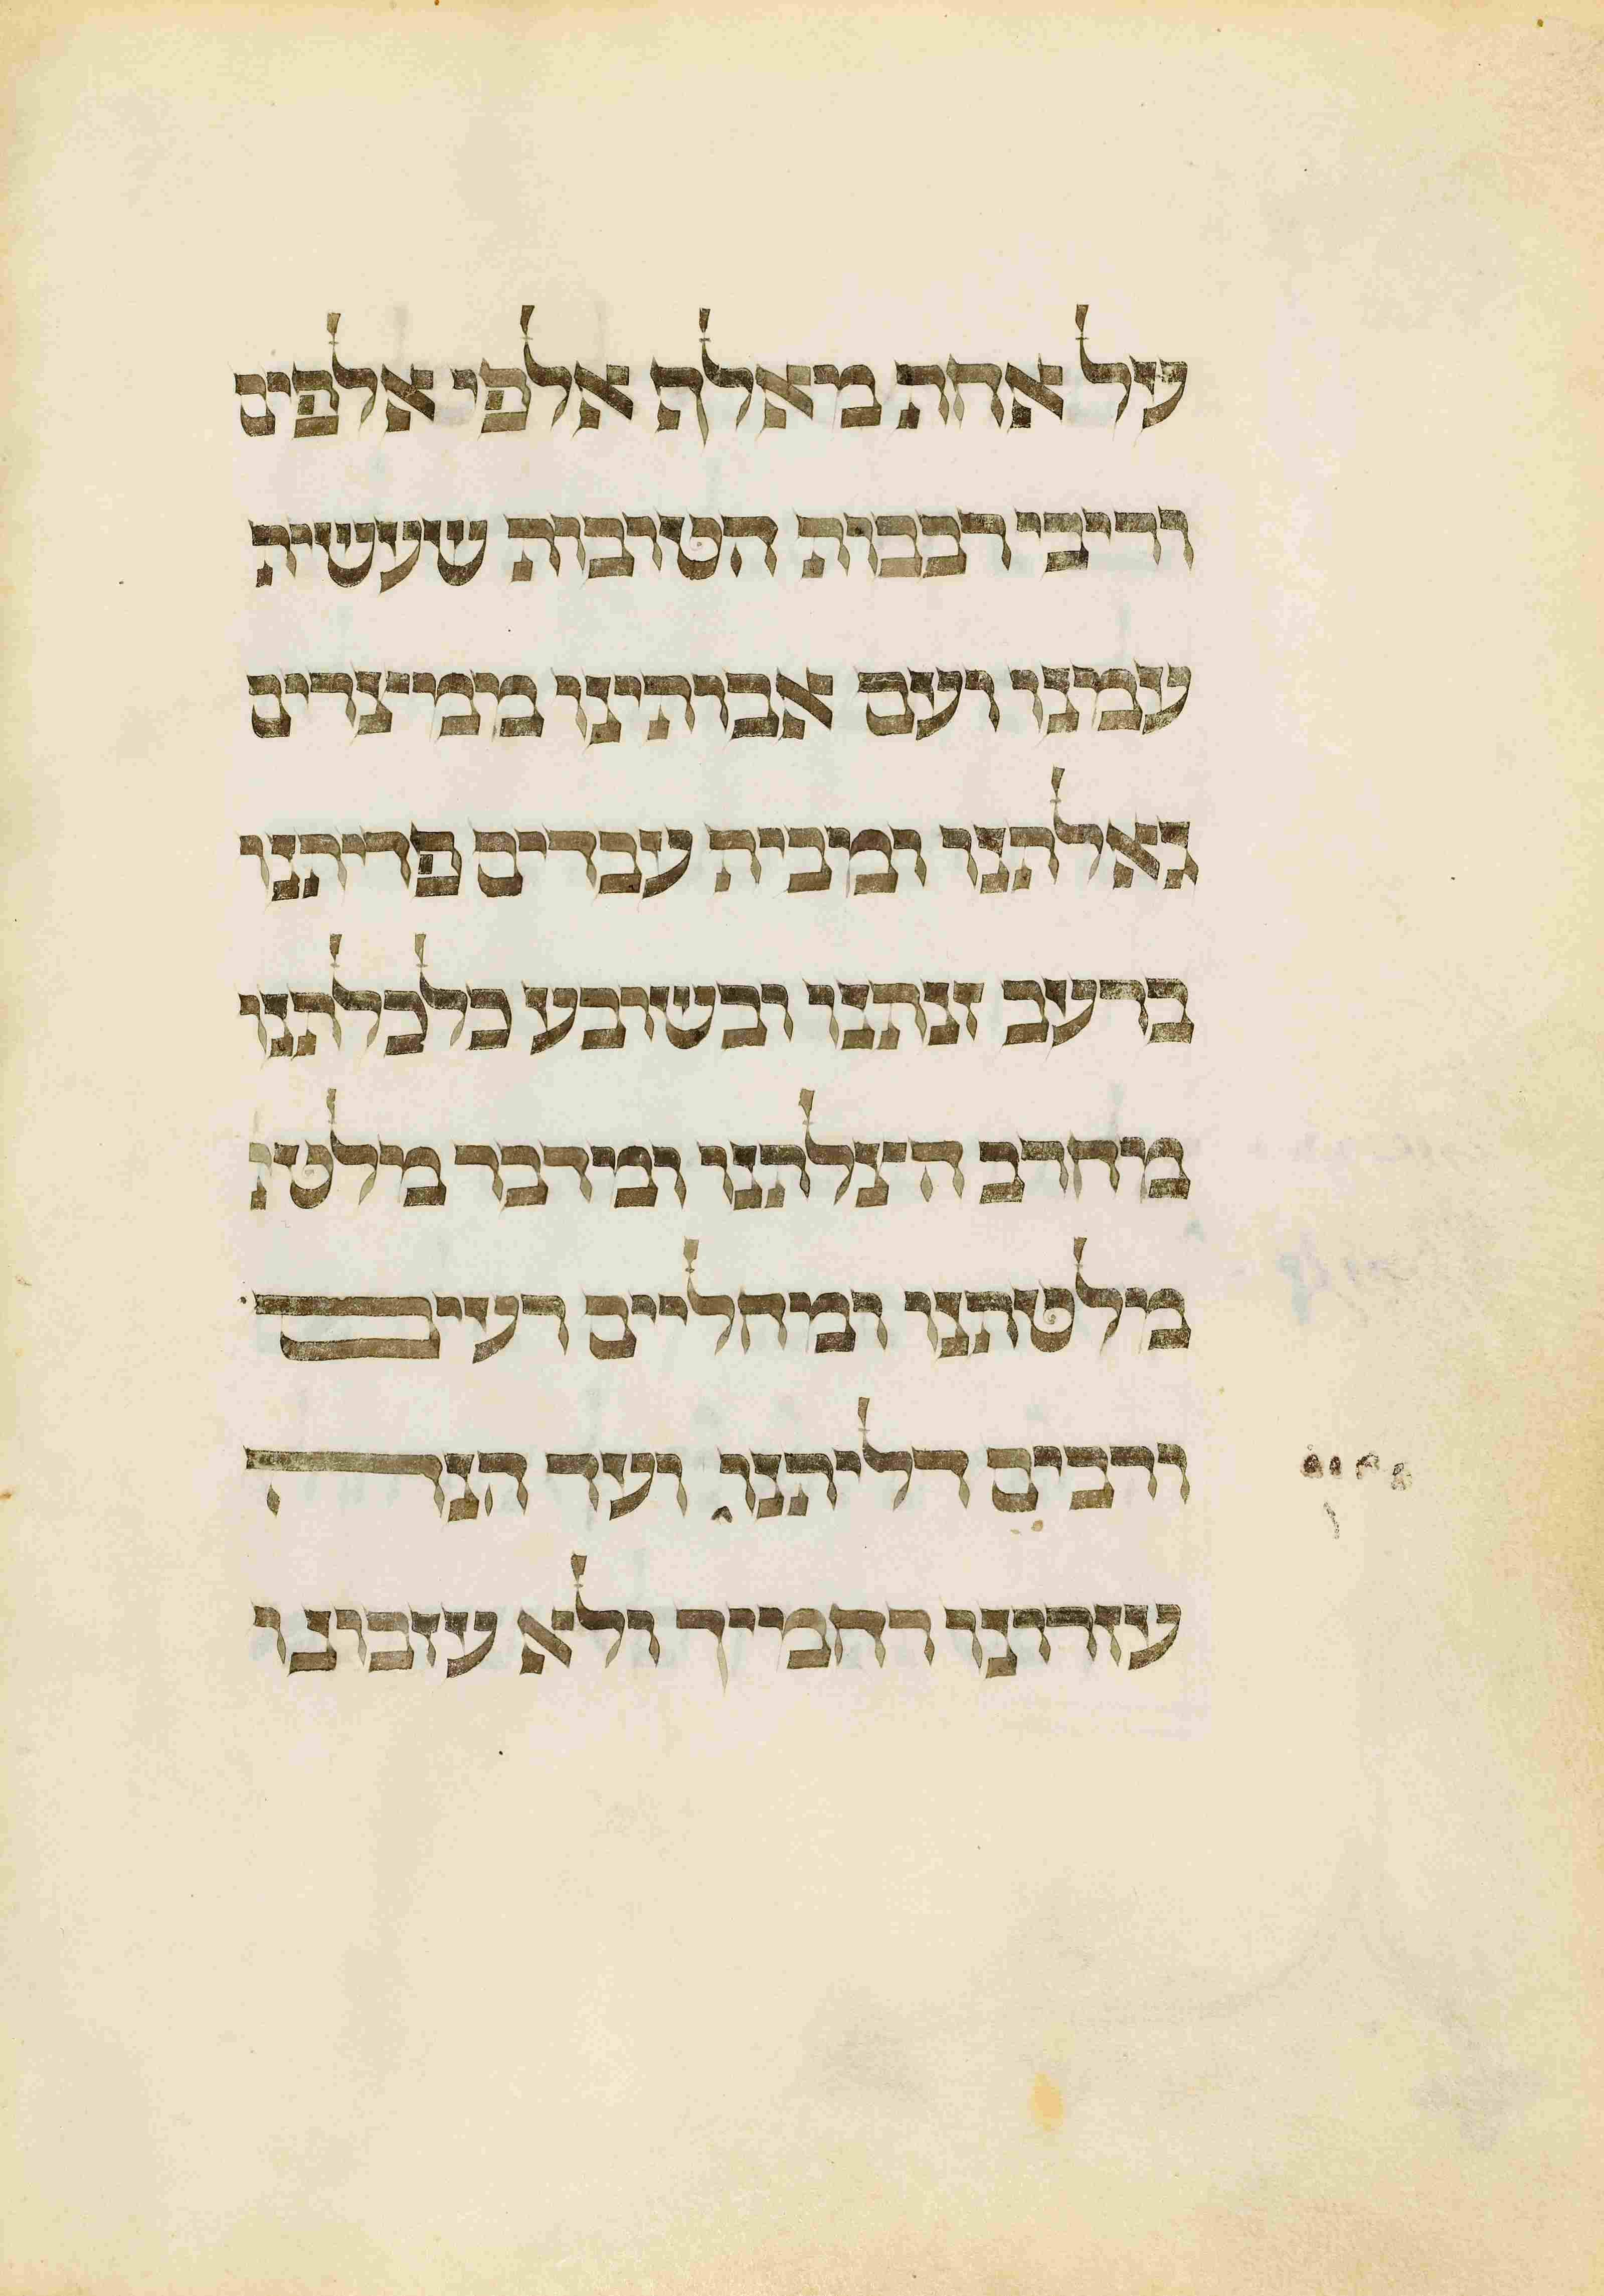 על אחת מאלף אלפי אלפים
וריבי רבבות הטובות שעשית
עמנו ועם אבותינו ממצרים
גאלתנו ומבית עבדים פדיתנו
ברעב זנתנו ובשובע כלכלתנו
מחרב הצלתנו ומדבר מלטת
מלטתנו ומחליים רעים
ורבים דליתנו ועד הנה
עזרונו רחמיך ולא עזבונו